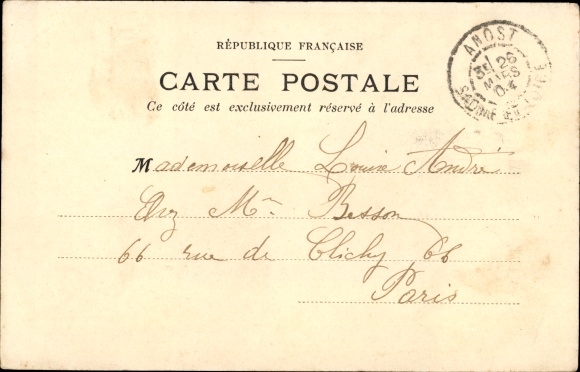 RÉPUBLIQUE FRANÇAISE
CARTE POSTALE
Ce côté est exclusivement réservé à l'adresse
ANOST
26
MARS
04
SAONE ET LOIRE
Mademoiselle Louise André
Chez Mr Besson
66 rue de Clichy 66
Paris